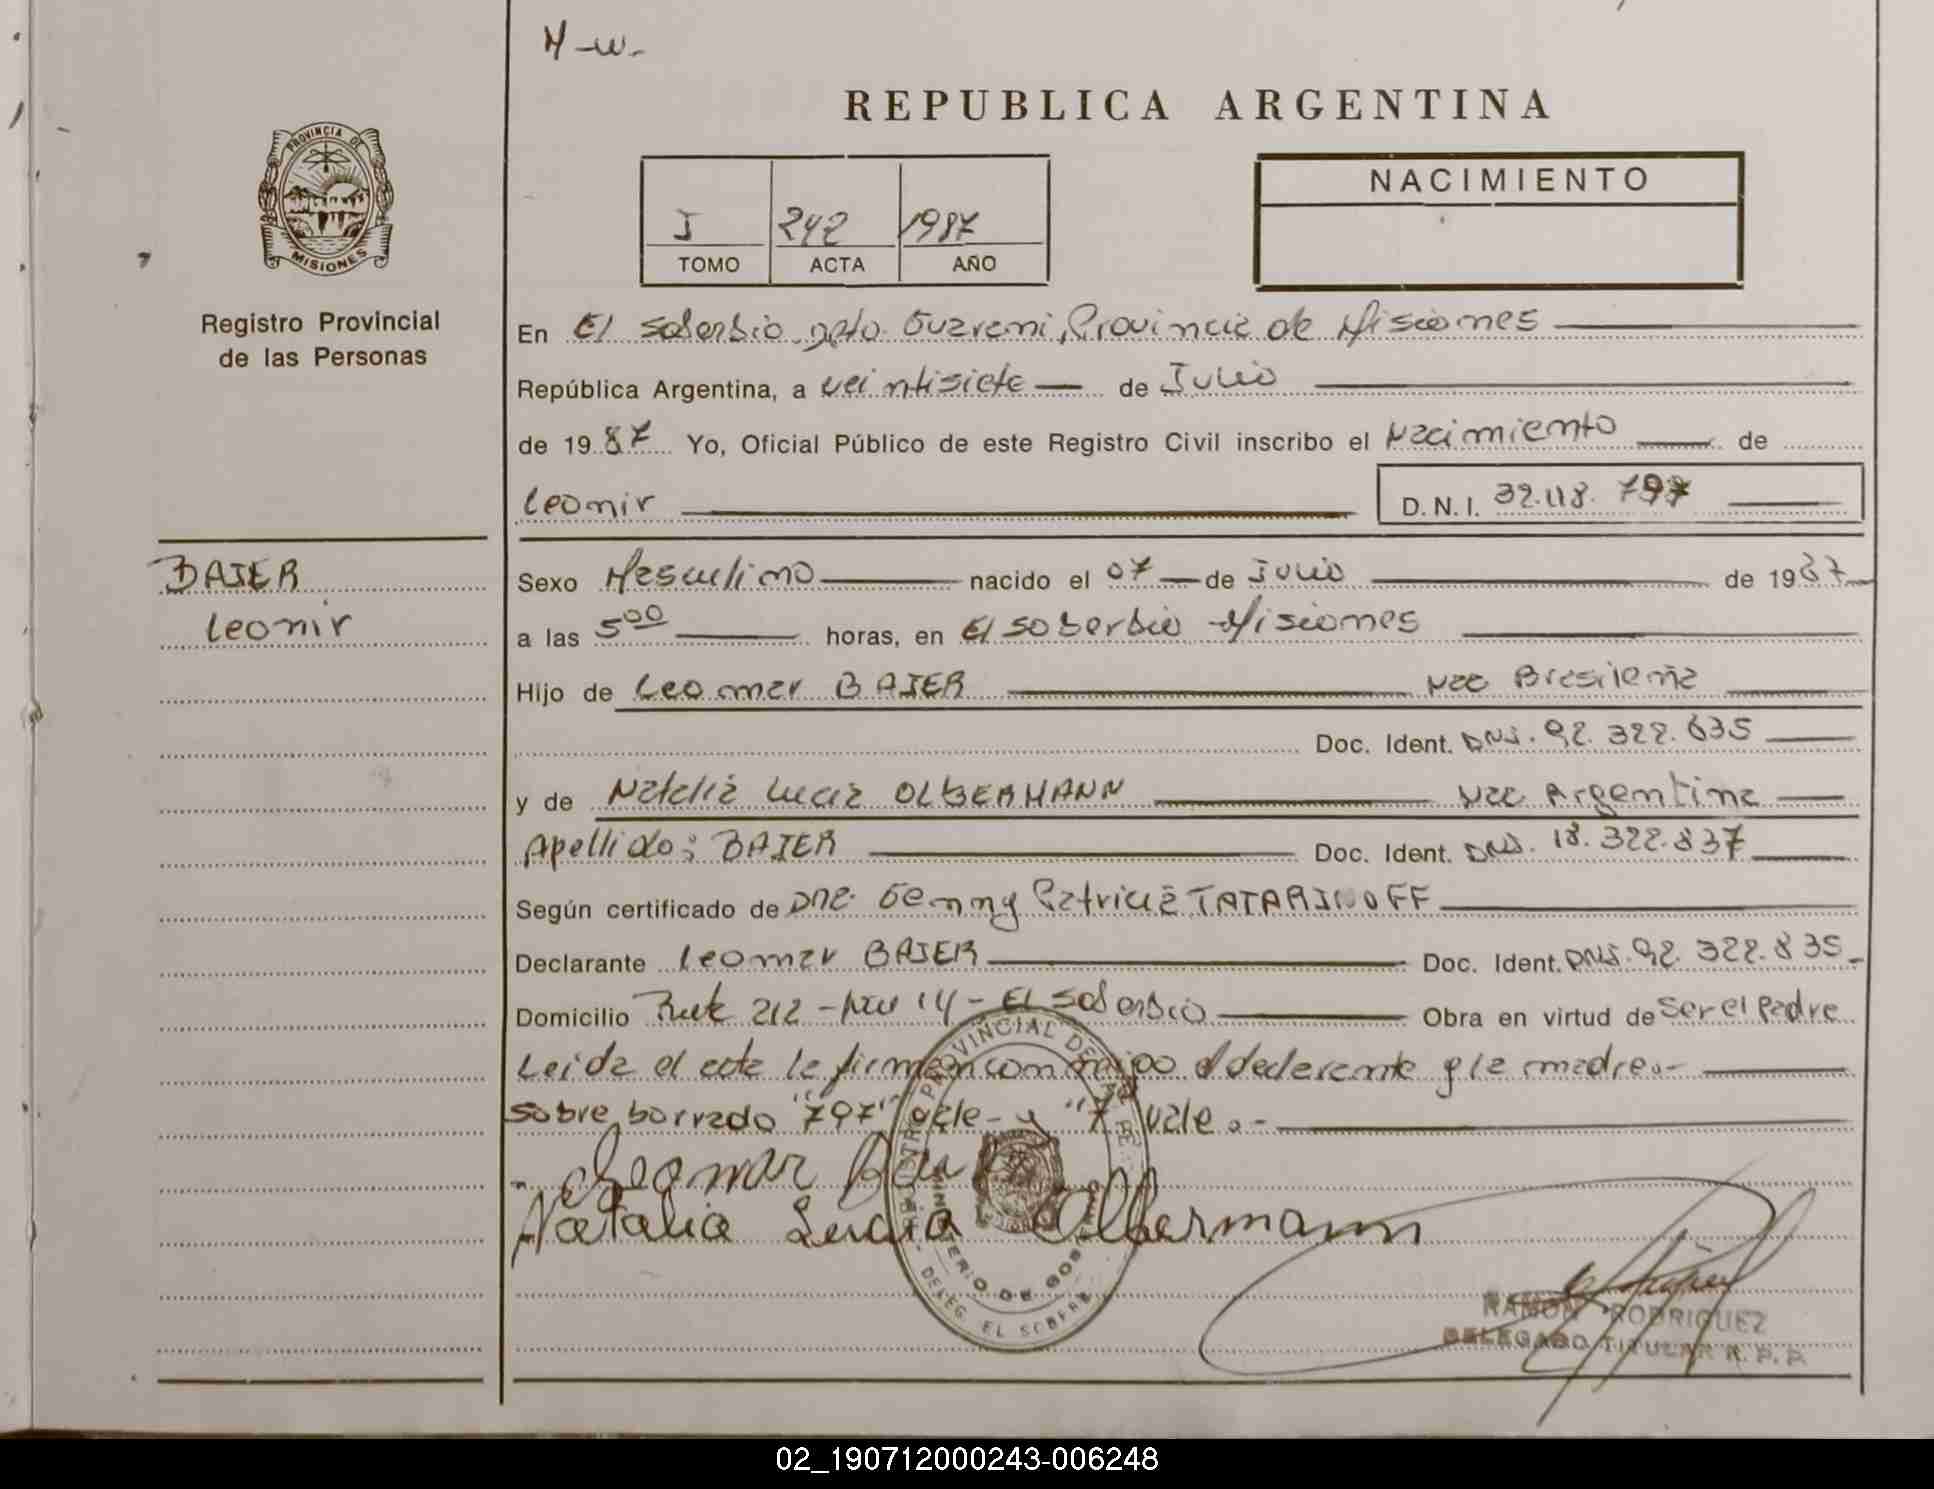 H-W-
REPUBLICA ARGENTINA
PROVINCIA DE
MISIONES
Registro Provincial
de las Personas
I 242 1987
TOMO ACTA AÑO
NACIMIENTO
En El Soberbio dpto. Guarani, Provincia de Misiones
República Argentina, a veintisiete de Julio
de 1987 Yo, Oficial Público de este Registro Civil inscribo el Nacimiento de
Leonir D.N.I. 32.118.797
BAIER
Leonir
Sexo Masculino nacido el 07 de Julio de 1987
a las 5 00 horas, en El Soberbio Misiones
Hijo de Leomar BAIER Nac Brasileña
Doc. Ident. DNI. 92.322.635
y de Natalia Lucia OLBERMANN Nac Argentina
Apellido: BAIER Doc. Ident. DNI. 18.322.837
Según certificado de Dra. Genny Patricia TATARINOFF
Declarante Leomar BAIER Doc. Ident. DNI. 92.322.835
Domicilio Ruta 212 - 14 - El Soberbio Obra en virtud de ser el Padre
Leida el acta la firman conmigo el declarante y la madre.-
sobre borrado "797" vale - y "7" vale.-
Leomar
Natalia Lucia Olbermann
REGISTRO PROVINCIAL DE
MINISTERIO DE GOB
DELEG. EL SOBERB
RAMON RODRIGUEZ
DELEGADO TITULAR R. P. P.
02_190712000243-006248